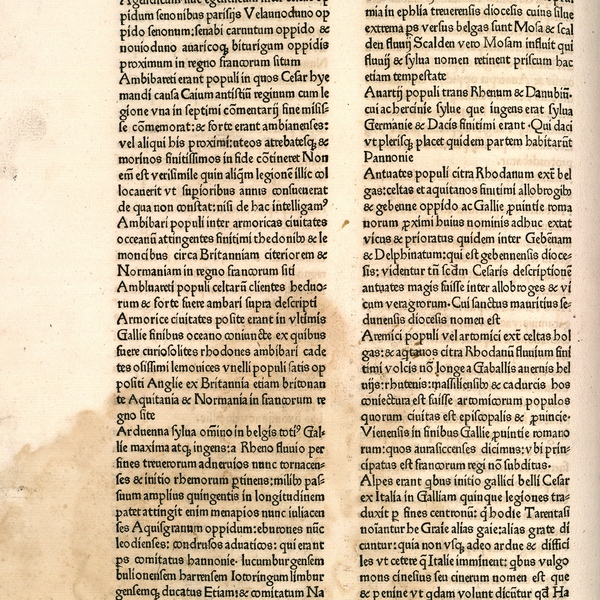 Agendicum
pidum senonibus parisijs Velaunoduno op
pido senonum: senabi carnutum oppido &
nouioduno auaricoq̃ biturigum oppidis
proximum in regno francorum situm
Ambibareti erant populi in quos Cesar hye
mandi causa Caium antistiū reginum cum le
gione vna in septimi cõmentarij fine misis-
se cõmemorat: & forte erant ambianenses:
vel aliqui his proximi: uteos atrebatesq̃ &
morinos finitissimos in fide cõtineret Non
em̄ est verisimile quin aliqm̄ legionē illic col
locauerit vt supioribus annis consueuerat
de qua non constat: nisi de hac intelligamꝰ
Ambibari populi inter armoricas ciuitates
oceanū attingentes finitimi rhedonibꝰ & le
mouicibus circa Britanniam citeriorem &
Normaniam in regno francorum siti
Ambluareti populi celtarū clientes heduo-
rum & forte fuere ambari supra descripti
Armorice ciuitates posite erant in vltimis
Gallie finibus oceano coniuncte ex quibus
fuere curiosolites rhodones ambibari cade
tes osissimi lemouices vnelli populi satis op
positi Anglie ex Britannia etiam britonan
te Aquitania & Normania in francorum re
gno site
Arduenna sylua om̄ino in belgis totiꝰ Gal-
lie maxima atq̃ ingens: a Rheno fluuio per
fines treuerorum adneruios nunc tornacen-
ses & initio rhemorum ꝑtinens: milibꝰ pas-
suum amplius quingentis in longitudinem
patet attingit enim menapios nunc iuliacen
ses Aquisgranum oppidum: eburones nūc
leodienses: condrusos aduaticos: qui erant
ps comitatus hannonie· lucumburgensem
bulionensem harrensem lotoringum limbur
gensemq̃ ducatus Etiam: & comitatum Na
mia in ephlia treuerensis diocesis cuius silue
extrema ps versus belgas sunt Mosa & scal
den fluuij Scalden vero Mosam influit qui
fluuij & sylua nomen retinent priscum hac
etiam tempestate
Anartij populi trans Rhenum & Danubiū·
cui ac hercinie sylue que ingens erat sylua
Germanie & Dacis finitimi erant · Qui daci
vt plerisq̃ placet quidem partem habitarūt
Pannonie
Antuates populi citra Rhodanum extē bel
gas: celtas et aquitanos finitimi allobrogibꝰ
& gebenne oppido ac Gallie ꝓuintie roma
norum ꝓximi huius nominis adhuc extat
vicus & prioratus quidem inter Gebēnam
& Delphinatum: qui est gebennensis dioce-
sis: videntur tñ scdm̄ Cesaris descriptionē
antuates magis fuisse inter allobroges & vi
cum veragrorum· Cui sanctus mauritius se-
dunensis diocesis nomen est
Aremici populi vel artomici extē celtas bol
gas: & aqitanos citra Rhodanū fluuium fini
timi volcis nō longe a Gaballis auernis hel
uijs: rhutenis: massiliensibꝰ & cadurcis hos
coniectura est fuisse artomicorum populos
quorum ciuitas est episcopalis & ꝓuincie·
Viennensis in finibus Gallie ꝓuintie romano
rum: quos aurasiccenses dicimus: vbi prin-
cipatus est francorum regi nō subditus·
Alpes erant qbus initio gallici belli Cesar
ex Italia in Galliam quinque legiones tra-
duxit p fines centronū: q̃ hodie Tarentasi
noīantur he Graie alias gaie: alias grate di
cuntur: quia non vsq̃ adeo ardue & diffici
les vt cetere q̃ Italie imminent: qbus vulgo
mons cinesius seu cinerum nomen est que
& penine vt qdam volunt dicūtur qd Ha